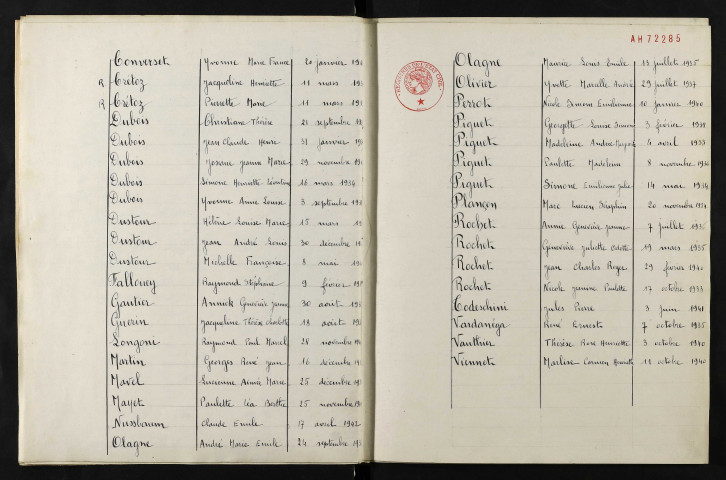 Converset Yvonne Marie France 20 janvier
R Crétoz Jacqueline Henriette 11 mars
R Crétoz Pierrette Marie 11 mars
Dubois Christiane Thérèse 21 septembre
Dubois Jean Claude Henri 31 janvier
Dubois Josiane Jeanne Marie 29 novembre
Dubois Simone Henriette 16 mars 1934
Dubois Yvonne Anne Louise 3 septembre
Dusteur Hélène Louise Marie 15 mars
Dusteur Jean André Louis 30 décembre
Dusteur Michelle Françoise 8 mai
Falloney Raymond Stéphane 9 février
Gautier Annick Geneviève Jeanne 30 août
Guérin Jacqueline Thérèse Charlotte 18 août
Longoni Raymond Paul Marcel 28 novembre
Martin Georges René Jean 16 décembre
Mavel Lucienne Annie Marie 25 décembre
Mayet Paulette Léa Berthe 25 novembre
Nussbaum Claude Emile 17 avril 1942
Olagne André Marie Emile 24 septembre
AH72285
Olagne Maurice Louis Emile 13 juillet 1935
Olivier Yvette Marcelle Andrée 29 juillet 1937
Perrot Nicole Simone Emilienne 10 janvier 1940
Piguet Georgette Louise Simone 3 février 1935
Piguet Madeleine Andrée 4 avril 1933
Piguet Paulette Madeleine 8 novembre
Piguet Simone Emilienne Julie 14 mai 1934
Plançon Marc Lucien Séraphin 20 novembre 1934
Rochet Annie Geneviève Jeanne 7 juillet
Rochet Geneviève Juliette Odette 19 mars 1935
Rochet Jean Charles Roger 29 février 1940
Rochet Nicole Jeanine Paulette 17 octobre 1933
Todeschini Jules Pierre 3 juin 1941
Vardanéga René Ernest 7 octobre 1935
Vauthier Thérèse Rose Henriette 3 octobre 1940
Viennet Marlise Carmen Henriette 11 octobre 1940